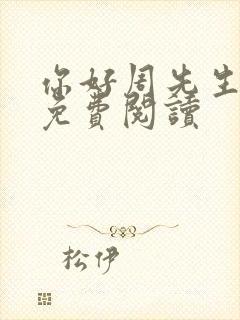 你好周先生
免費閱讀
松伊